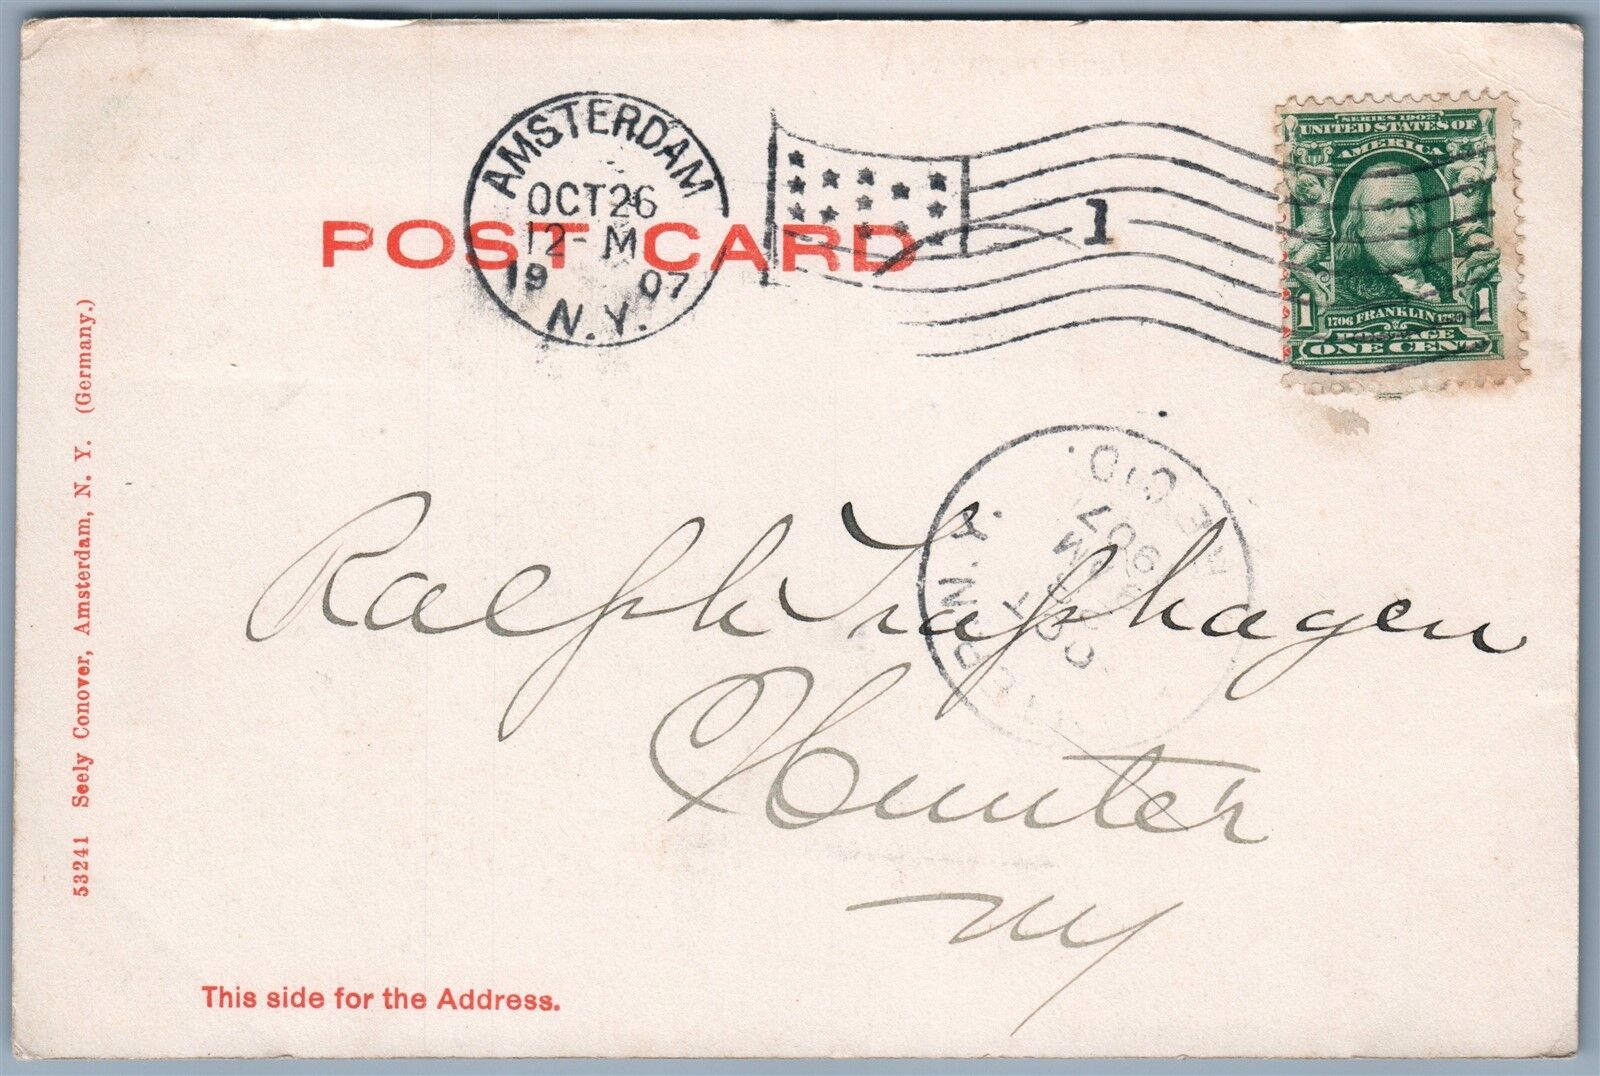 AMSTERDAM
OCT 26
12-M
1907
N.Y.
1
SERIES 1902
UNITED STATES OF
AMERICA
1 1706 FRANKLIN 1790 1
POSTAGE
ONE CENT
POST CARD
REC'D.
OCT
M
1907
N.Y.
Ralph Traphagen
Hunter
NY
53241 Seely Conover, Amsterdam, N. Y. (Germany.)
This side for the Address.